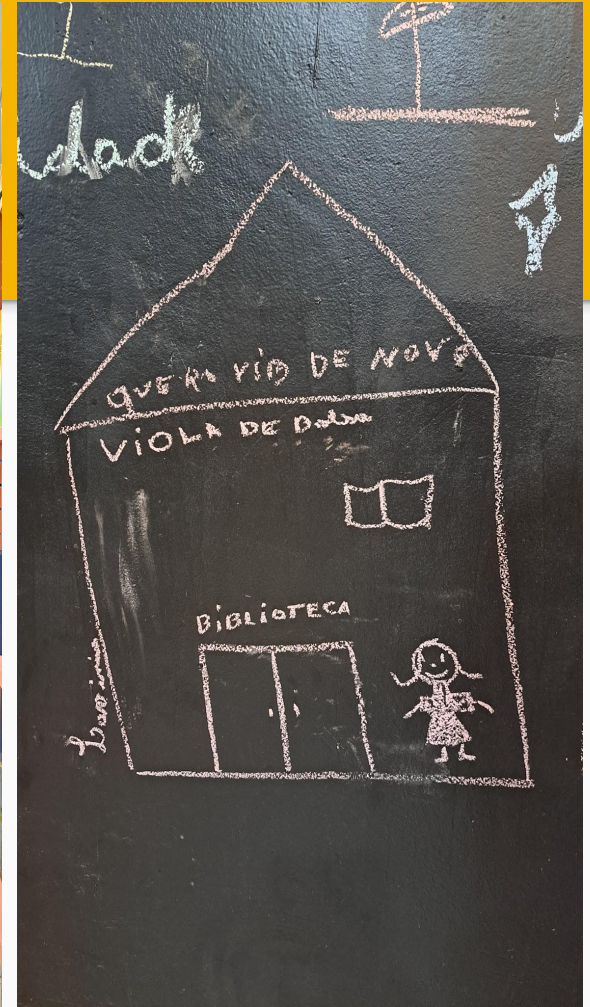 idade
QUERO VIR DE NOVO
VIOLA DE Bolso
BiBLiOTECA